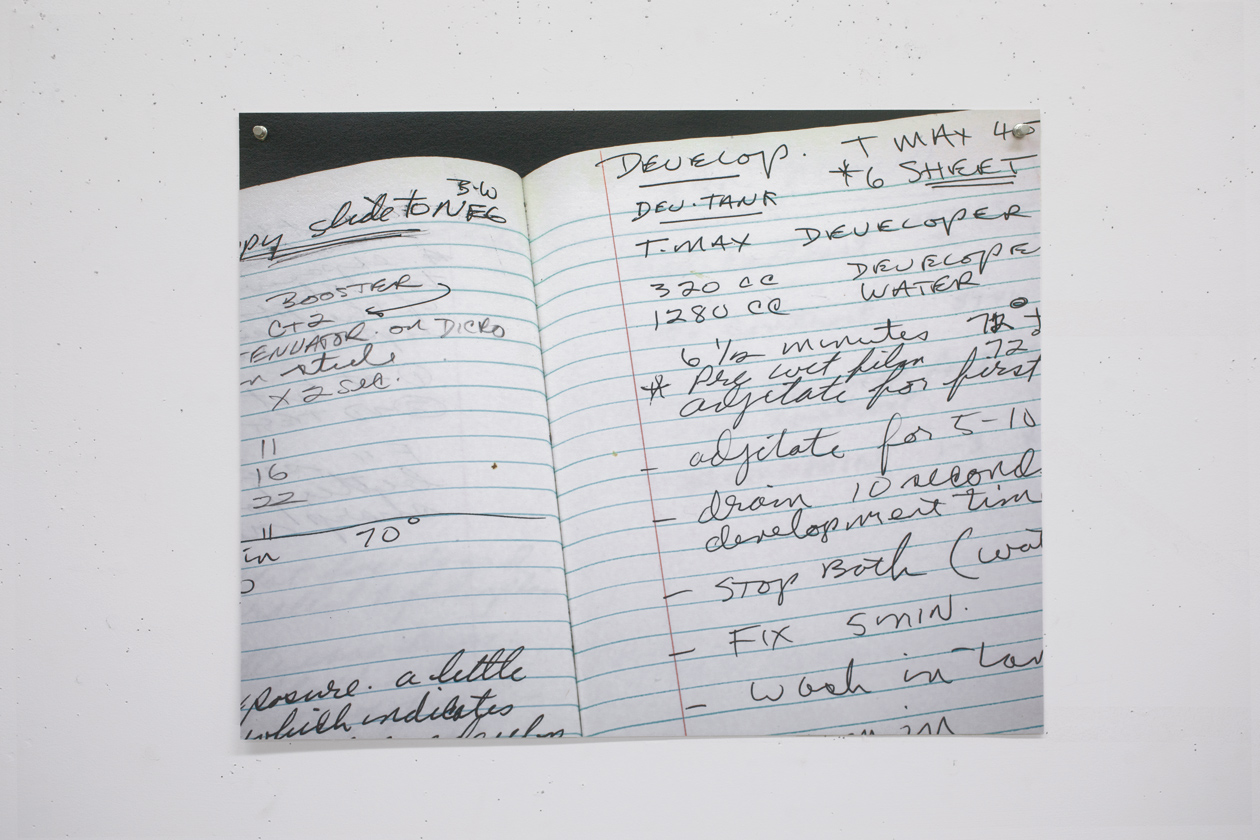 B-W
slide to NEG
BOOSTER
C+2
OR DICRO
n
X 2 sec.
11
16
22
11
in 70°
a little
which indicates
DEVELOP. T MAX
*6 SHEET
DEV. TANK
T-MAX DEVELOPER
320 cc DEVELOPE
1280 cc WATER
6 1/2 minutes
* Pre wet film 72°
adjitate for first
- adjitate for 5-10
- drain 10 second
development tim
- STOP Bath (wat
- FIX 5 MIN.
- wash in